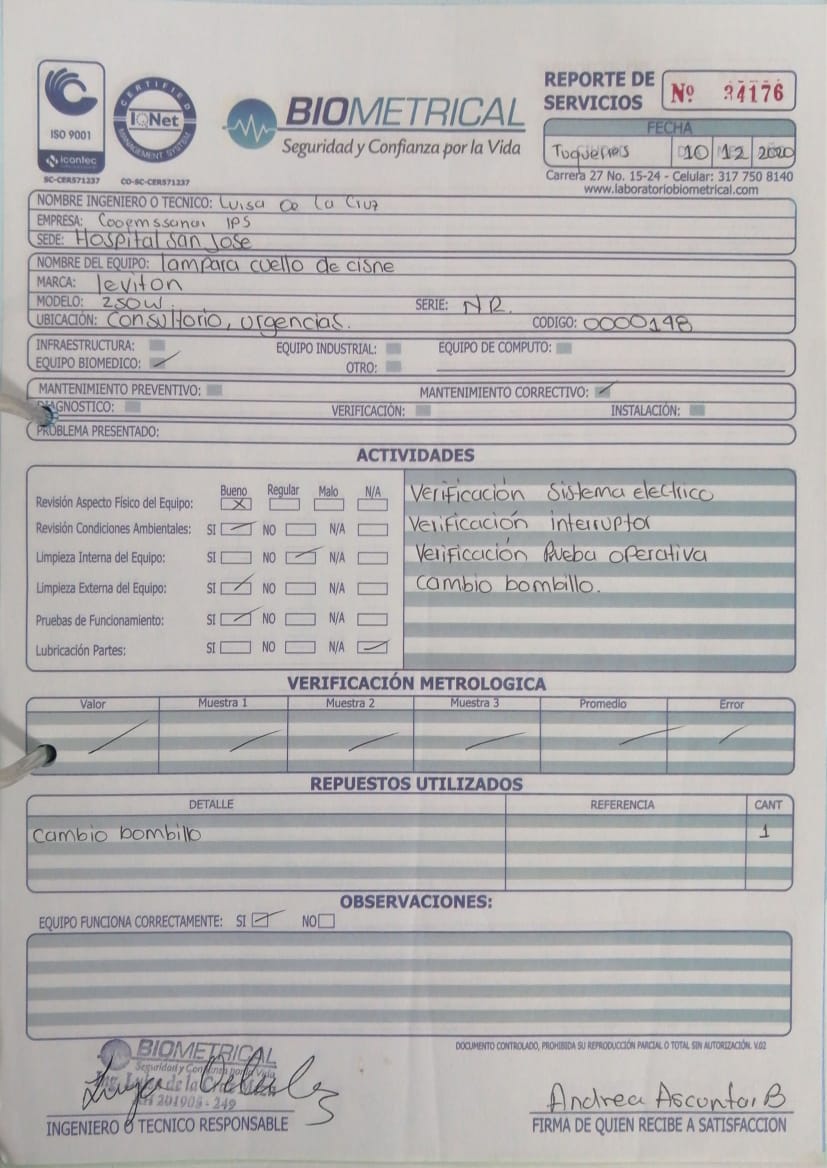 ISO 9001
icontec
SC-CER571237
CERTIFIED
IQNet
MANAGEMENT SYSTEM
CO-SC-CER571237
BIOMETRICAL
Seguridad y Confianza por la Vida
REPORTE DE SERVICIOS
Nº 34176
FECHA
Tuquerres 10 12 2020
Carrera 27 No. 15-24 - Celular: 317 750 8140
www.laboratoriobiometrical.com
NOMBRE INGENIERO O TECNICO: Luisa De La Cruz
EMPRESA: Coopmssanar IPS
SEDE: Hospital San Jose
NOMBRE DEL EQUIPO: lampara cuello de cisne
MARCA: leviton
MODELO: 250W. SERIE: NR.
UBICACIÓN: Consultorio, urgencias. CODIGO: 0000148
INFRAESTRUCTURA: EQUIPO INDUSTRIAL: EQUIPO DE COMPUTO:
EQUIPO BIOMEDICO: OTRO:
MANTENIMIENTO PREVENTIVO: MANTENIMIENTO CORRECTIVO:
DIAGNOSTICO: VERIFICACIÓN: INSTALACIÓN:
PROBLEMA PRESENTADO:
ACTIVIDADES
Bueno Regular Malo N/A
Revisión Aspecto Físico del Equipo: X
Revisión Condiciones Ambientales: SI NO N/A
Limpieza Interna del Equipo: SI NO N/A
Limpieza Externa del Equipo: SI NO N/A
Pruebas de Funcionamiento: SI NO N/A
Lubricación Partes: SI NO N/A
Verificación Sistema electrico
Verificación interruptor
Verificación Prueba operativa
Cambio bombillo.
VERIFICACIÓN METROLOGICA
Valor Muestra 1 Muestra 2 Muestra 3 Promedio Error
REPUESTOS UTILIZADOS
DETALLE REFERENCIA CANT
Cambio bombillo 1
OBSERVACIONES:
EQUIPO FUNCIONA CORRECTAMENTE: SI NO
DOCUMENTO CONTROLADO, PROHIBIDA SU REPRODUCCIÓN PARCIAL O TOTAL SIN AUTORIZACIÓN. V.02
BIOMETRICAL
Seguridad y Confianza por la Vida
201903 - 249
INGENIERO O TECNICO RESPONSABLE
Andrea Ascuntar B
FIRMA DE QUIEN RECIBE A SATISFACCION